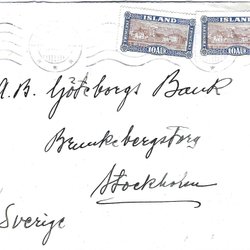 ISLAND ISLAND
10 AUR. 10 AUR.
A.B. Göteborgs Bank
Brunkebergstorg
Stockholm
Sverige